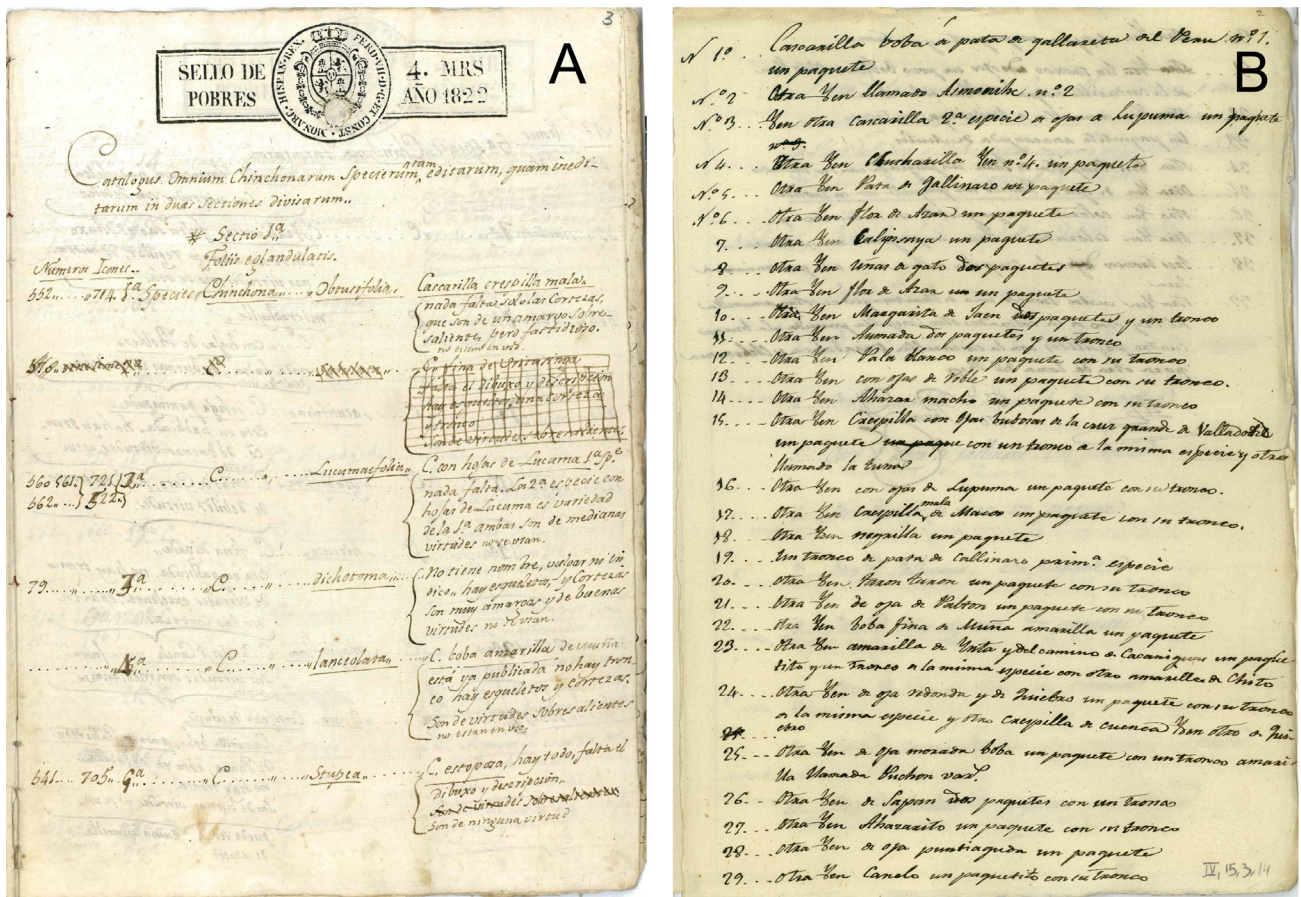 3
SELLO DE POBRES
HISPAN. REX. FERD. VII. D. G. ET CONST. MONARC.
4. MRS AÑO 1822
A
Catalogus Omnium Chinchonarum Specierum, quam editarum, quam inedi-
tarum in duas Sectiones divisarum.,
* Sectio 1ª
Foliis eglandulatis.
Numeros Icones..
552..... „714. 1ª Species Chinchona.. „Obtusifolia„ Cascarilla crespilla mala.
nada falta. sólo las Cortezas,
que son de un amargo sobre-
saliente, pero fastidiozo.
516„
C. fina de
falta el dibuxo y descripcion
hay esqueletos, una corteza
y tronco
Son de virtudes sobresalientes
560 561.} 721} 2ª ..... C. ....... Lucumaefolia„ C. con hojas de Lucuma 1ª Spe
562.. ...} 722.}
nada falta. La 2ª especie con
hojas de Lucuma es variedad
de la 1ª ambas son de medianas
virtudes no se usan.
79. ..... „ 3ª ..... „C. ..... „Dichotoma„ C. No tiene nombre, vulgar ni in-
dico„ hay esqueletos, y Cortezas
son muy amargas y de buenas
virtudes no se usan.
........ „ 4ª ..... „ C. ..... „lanceolata„ „C. boba amarilla de muña
está ya publicada no hay tron-
co hay esqueletos y cortezas.
Son de virtudes sobresalientes
no estan en uso
541... 705„ ..... „C. ..... „Stupea„ ..... C. estopoza, hay todo, falta el
dibuxo y descripción„
Son de virtudes sobresalientes
Son de ninguna virtud
2
B
N 1º Cascarilla boba ó pata de gallareta del Peru nº 1.
un paquete
Nº 2 Otra Yen llamado Asmonihe nº 2
Nº 3 Yen otra cascarilla 2ª especie de ojas de Lupuma un paquete
N 4. Otra Yen Chucharilla Yen nº 4. un paquete
Nº 5 Otra Yen Pata de Gallinazo un paquete
Nº 6 Otra Yen flor de Azar un paquete
7. Otra Yen un paquete
8. Otra Yen uñas de gato dos paquetes
9. Otra Yen flor de Azar un paquete
10.. Otra Yen Margarita de Jaen dos paquetes y un tronco
11.. Otra Yen Aumada dos paquetes y un tronco
12.. Otra Yen Pala blanco un paquete con su tronco
13.. Otra Yen con ojas de roble un paquete con su tronco.
14.. Otra Yen Ahazar macho un paquete con su tronco
15.. Otra Yen Crespilla con ojas de la cruz grande de Valladolid
un paquete un paque con un tronco de la misma especie y otro
llamado la tuna
16.. Otra Yen con ojas de Lupuma un paquete con su tronco.
17.. Otra Yen Crespilla mala de Macos un paquete con su tronco.
18.. Otra Yen negrilla un paquete
19.. Un tronco de pata de Gallinazo primª especie
20.. Otra Yen Turon Turon un paquete con su tronco
21.. Otra Yen de oja de Palton un paquete con su tronco
22.. Otra Yen boba fina de Muña amarilla un paquete
23.. Otra Yen amarilla de Ynta y del camino de un paque-
tito y un tronco de la misma especie con otro amarilla de Chito
24.. Otra Yen de oja redonda y de Quiebro un paquete con su tronco
de la misma especie y otro crespilla de cuenca Yen otro de Qui-
ebro
25.. Otra Yen de oja morada boba un paquete con un tronco amari-
lla llamada Puchon var.
26.. Otra Yen de Sapan dos paquetes con un tronco
27.. Otra Yen Ahazarito un paquete con su tronco
28.. Otra Yen de oja puntiaguda un paquete
29.. Otra Yen Canelo un paquetito con su tronco
IV, 15, 3, 14